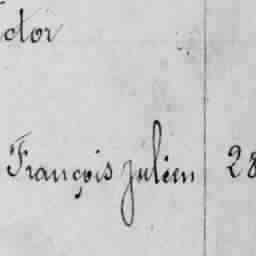 ctor
François julien 28